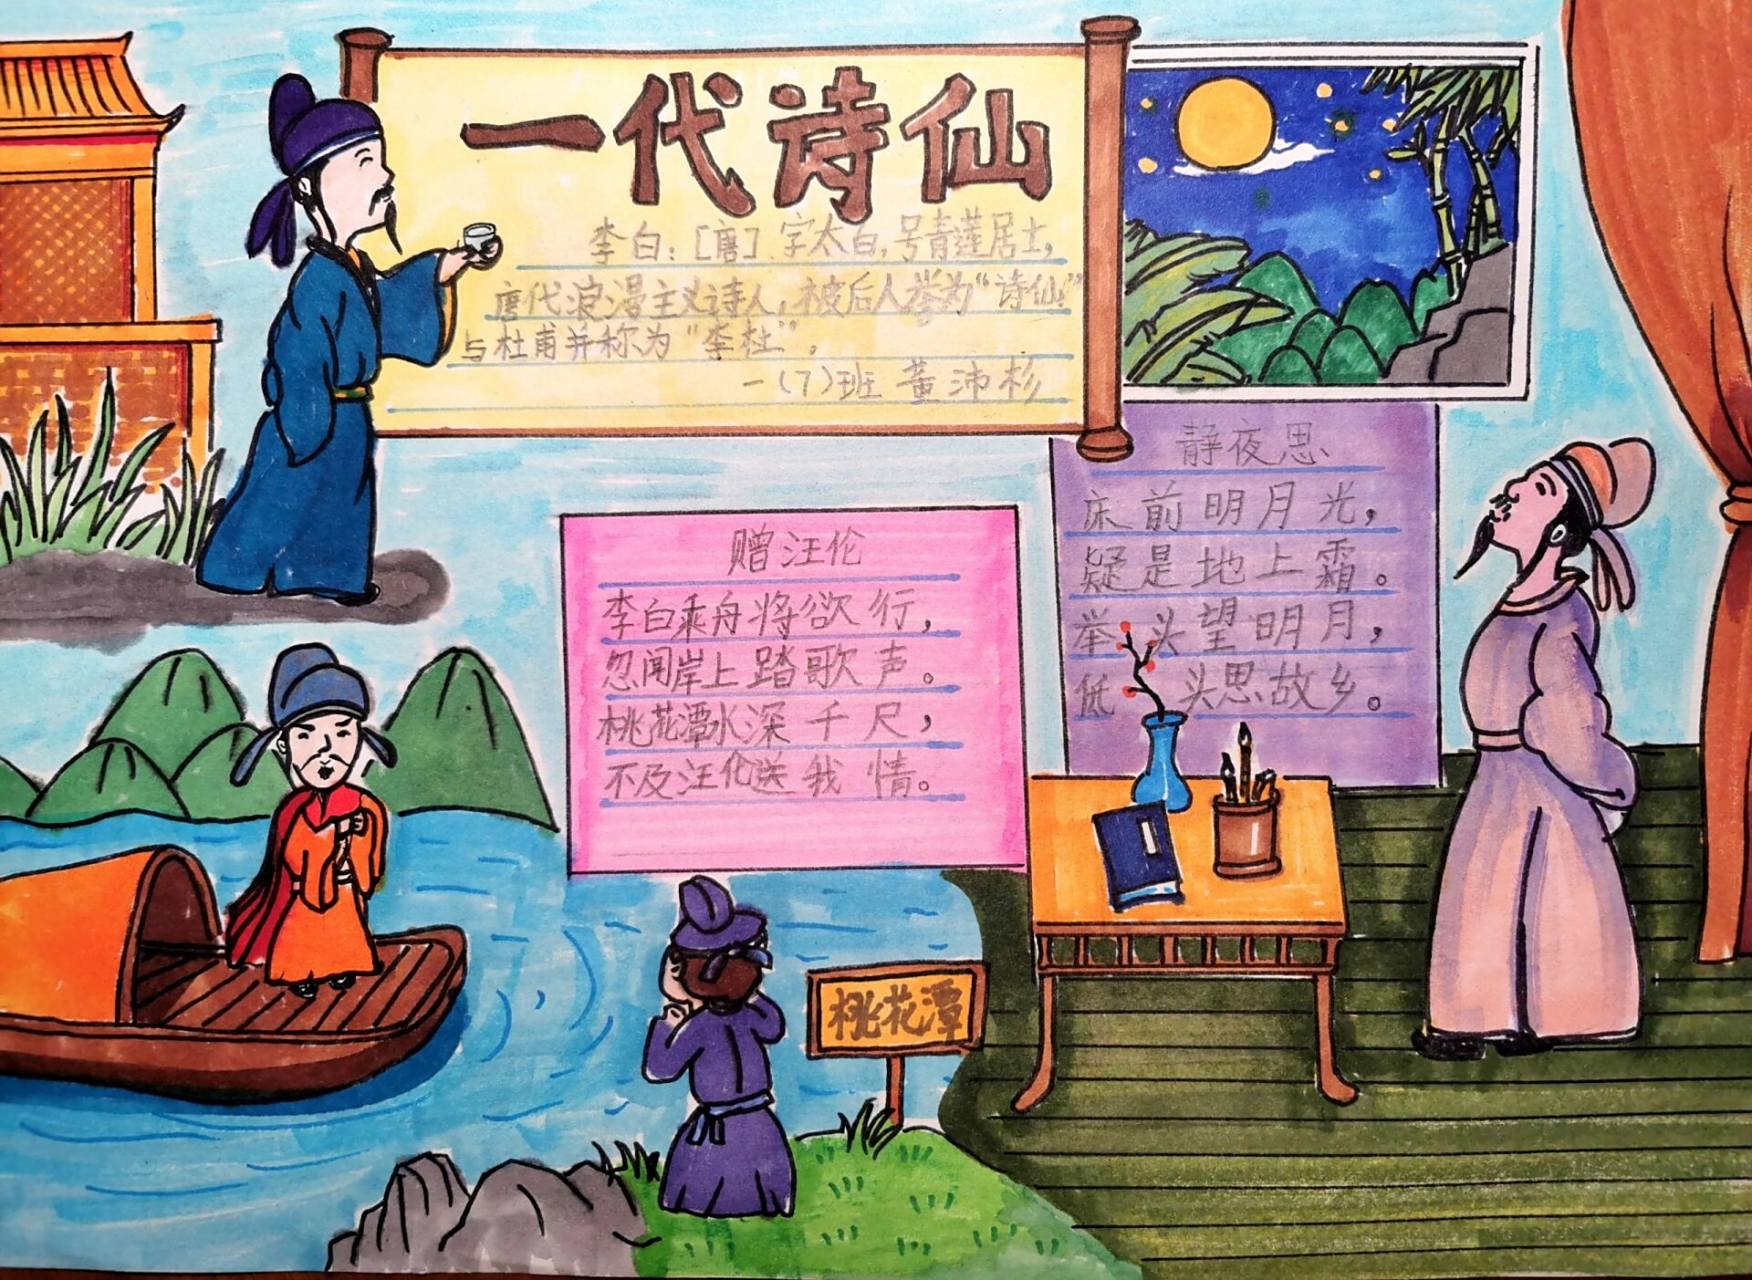 一代诗仙
李白：[唐].字太白，号青莲居士，
唐代浪漫主义诗人，被后人举为“诗仙”
与杜甫并称为“李杜”。
一（7）班 董沛杉
静夜思
床前明月光，
疑是地上霜。
举头望明月，
低 头思故乡。
赠汪伦
李白乘舟将欲行，
忽闻岸上踏歌声。
桃花潭水深千尺，
不及汪伦送我情。
桃花潭